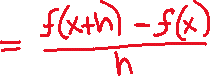 = \frac{f(x+h) - f(x)}{h}